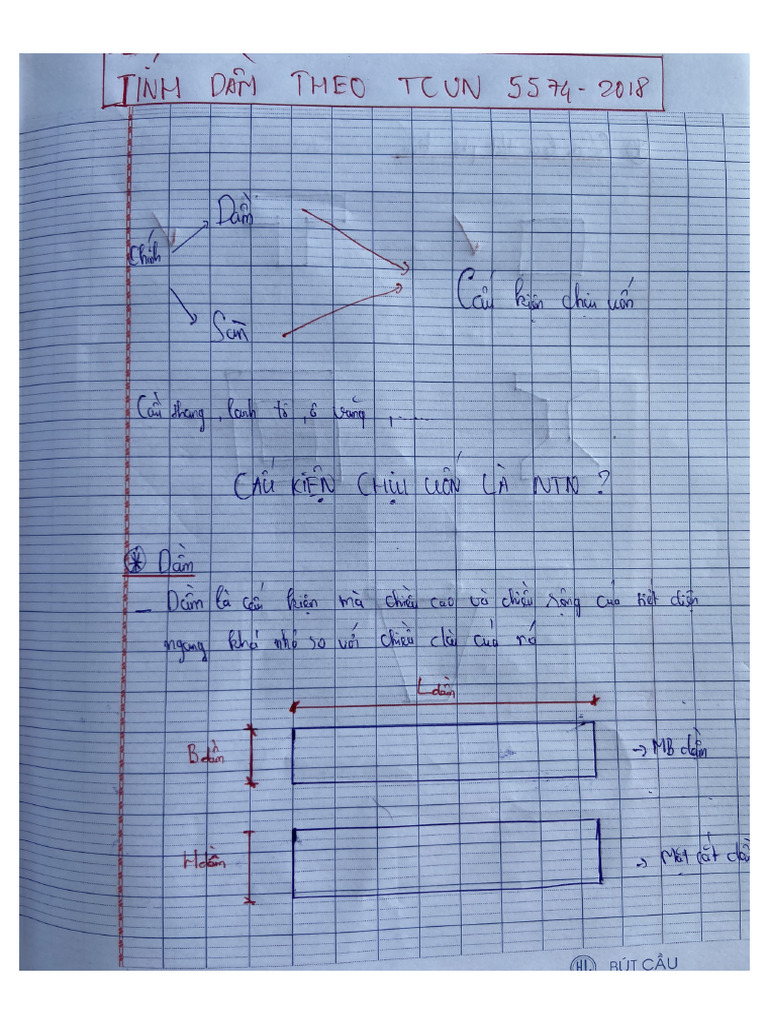 TÍNH DẦM THEO TCVN 5574-2018
Dầm
Chính
Cấu kiện chịu uốn
Sàn
Cầu thang, lanh tô, ô văng, ......
CẤU KIỆN CHỊU UỐN LÀ NTN?
* Dầm
- Dầm là cấu kiện mà chiều cao và chiều rộng của tiết diện
ngang khá nhỏ so với chiều dài của nó
L dầm
B dầm
→ MB dầm
H dầm
→ Mặt cắt dầ
HL BÚT CẦU